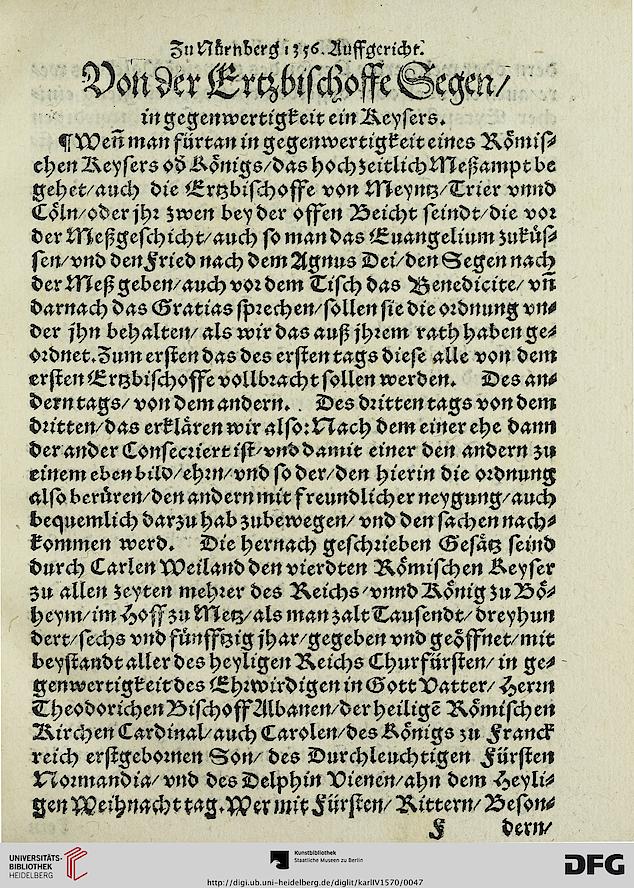 Zu Nürnberg 1356. Auffgericht.
Von der Ertzbischoffe Segen/
in gegenwertigkeit ein Keysers.
¶ Weñ man fürtan in gegenwertigkeit eines Römis-
chen Keysers od Königs/das hochzeitlich Meßampt be
gehet/auch die Ertzbischoffe von Meyntz/Trier vnnd
Cöln/oder jhr zwen bey der offen Beicht seindt/die vor
der Meß geschicht/auch so man das Euangelium zuküs-
sen/vnd den Fried nach dem Agnus Dei/den Segen nach
der Meß geben/auch vor dem Tisch das Benedicite/vñ
darnach das Gratias sprechen/sollen sie die ordnung vn-
der jhn behalten/als wir das auß jhrem rath haben ge-
ordnet. Zum ersten das des ersten tags diese alle von dem
ersten Ertzbischoffe vollbracht sollen werden. Des an-
dern tags/von dem andern. Des dritten tags von dem
dritten/das erklären wir also: Nach dem einer ehe dann
der ander Consecriert ist/vnd damit einer den andern zu
einem eben bild/ehrn/vnd so der/den hierin die ordnung
also berüren/den andern mit freundlicher neygung/auch
bequemlich darzu hab zubewegen/vnd den sachen nach-
kommen werd. Die hernach geschrieben Gesätz seind
durch Carlen Weiland den vierdten Römischen Keyser
zu allen zeyten mehrer des Reichs/vnnd König zu Bö-
heym/im Hoff zu Metz/als man zalt Tausendt/dreyhun
dert/sechs vnd fünfftzig jhar/gegeben vnd geöffnet/mit
beystandt aller des heyligen Reichs Churfürsten/in ge-
genwertigkeit des Ehrwirdigen in Gott Vatter/Herrn
Theodorichen Bischoff Albanen/der heiligē Römischen
Kirchen Cardinal/auch Carolen/des Königs zu Franck
reich erstgebornen Son/des Durchleuchtigen Fürsten
Normandia/vnd des Delphin Vienen/ahn dem Heyli-
gen Weihnacht tag. Wer mit Fürsten/Rittern/Beson-
F dern/
UNIVERSITÄTS-
BIBLIOTHEK
HEIDELBERG
Kunstbibliothek
Staatliche Museen zu Berlin
http://digi.ub.uni-heidelberg.de/diglit/karlIV1570/0047
DFG